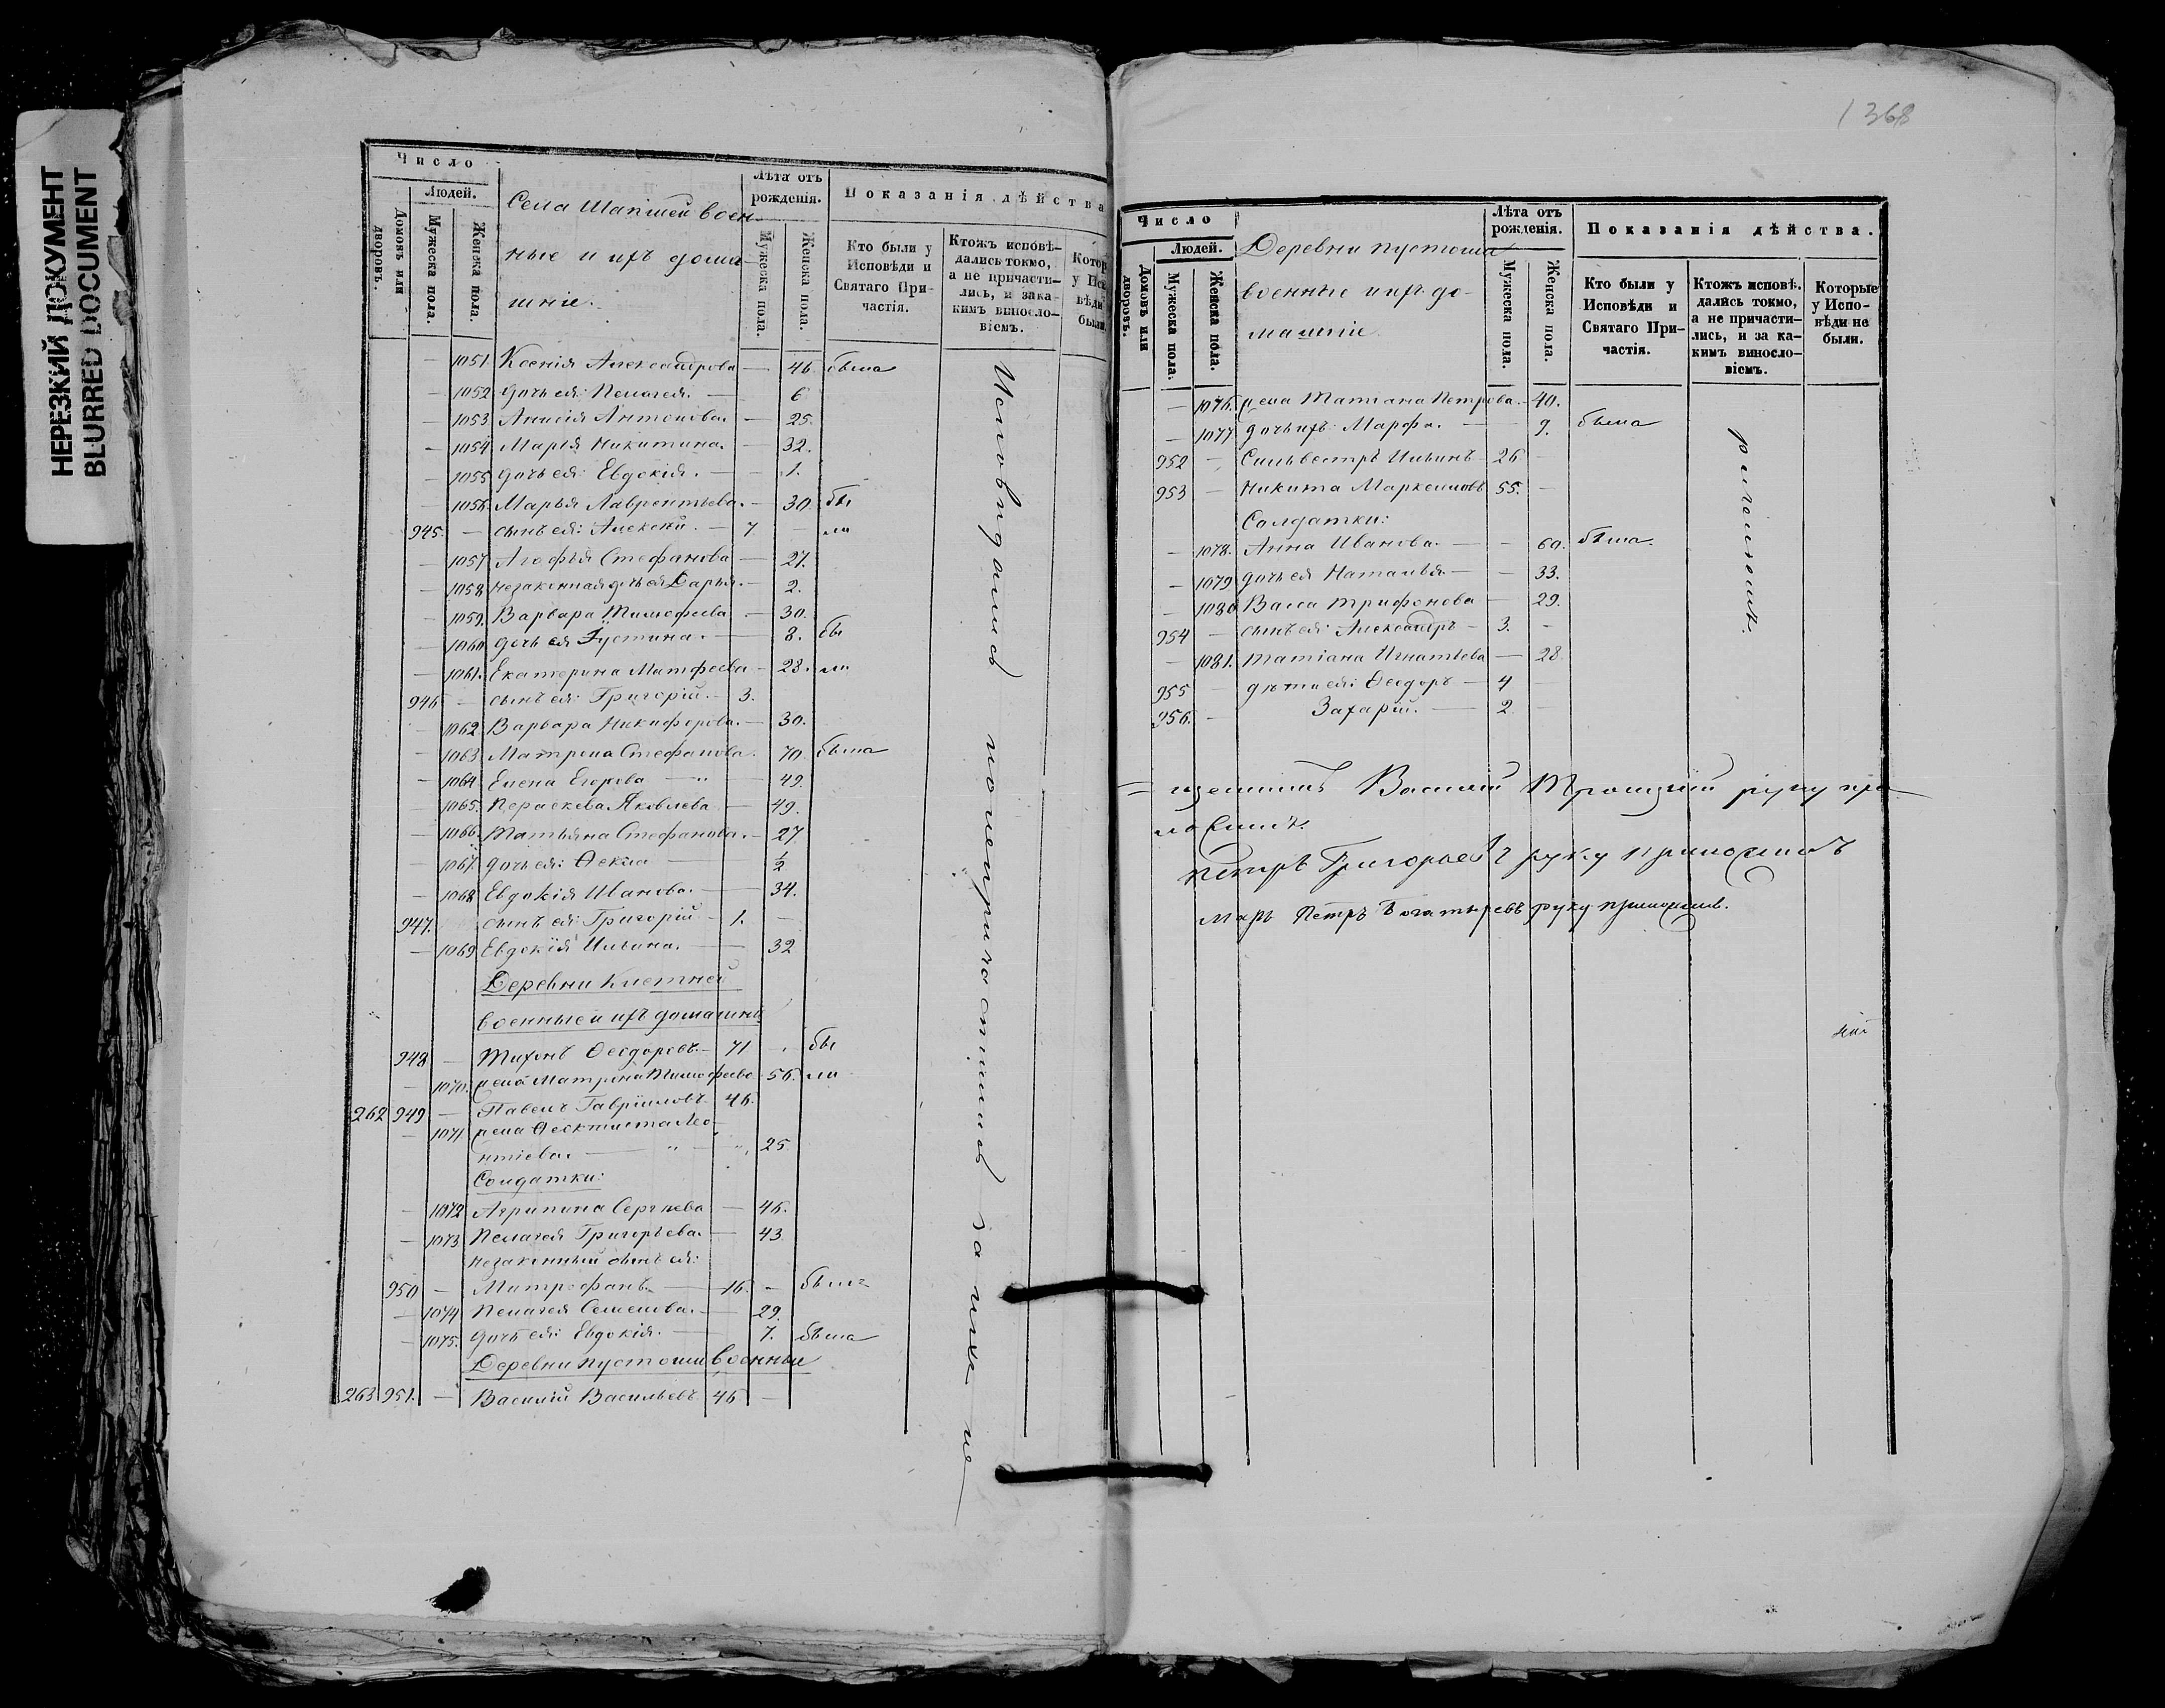 НЕРЕЗКИЙ ДОКУМЕНТ
BLURRED DOCUMENT
Число
Людей.
Домовъ или дворовъ.
Мужеска пола.
Женска пола.
Села Шапшей воен-
ные и ихъ дома-
шніе.
Лѣта отъ рожденія.
Мужеска пола.
Женска пола.
Показанія дѣйства
Кто были у Исповѣди и Святаго При-частія.
Ктожъ исповѣ-дались токмо, а не причасти-лись, и зака-кимъ винословіемъ.
1051. Ксенія Александрова — 46. была
1052 дочь ея: Пелагея. — 6
1053. Анисія Антонова. — 25.
1054 Марья Никитина. — 32.
1055 дочь ея: Евдокія. — 1.
1056. Марья Лаврентьева. — 30. бы
945. — сынъ ея: Алексѣй. — 7 — ли
1057. Агафья Стефанова — 27.
1058 незаконная дочь ея Дарья. — 2.
1059. Варвара Тимофеева — 30.
1060 дочь ея Іустина. — 8. бы
1061. Екатерина Матфеева — 28. ли
946 — сынъ ея: Григорій. — 3.
1062. Варвара Никифорова. — 30.
1063. Матрена Стефанова. 70. была
1064. Елена Егорова — 49.
1065. Параскева Яковлева — 49.
1066. Татьяна Стефанова. — 27
1067. дочь ея: Ѳекла — 1/2
1068 Евдокія Иванова. — 34.
947. сынъ ея: Григорій — 1. —
1069 Евдокія Ильина. — 32
Деревни Клетней
военные и ихъ домашніе
948 — Тихонъ Ѳеодоровъ. — 71 — бы
1070. жена Матрена Тимофеева 56. ли
262 949 — Павелъ Гавріиловъ 46.
1071 жена Ѳеоктиста Лео-
нтіева. — 25
Солдатки:
1072 Агрипина Сергѣева — 46.
1073 Пелагея Григорьева. — 43
незаконный сынъ ея:
950 — Митрофанъ. — 16. — былъ
1074 Пелагея Семенова. — 29.
1075. дочь ея: Евдокія. — 7. была
Деревни Пустоши военные
263 951. — Василій Васильевъ 46 —
Исповѣдались но не причастились за ихже не
1368
Число
Людей.
Домовъ или дворовъ.
Мужеска пола.
Женска пола.
Деревни Пустоши
военные и ихъ до-
машніе.
Лѣта отъ рожденія.
Мужеска пола.
Женска пола.
Показанія дѣйства.
Кто были у Исповѣди и Святаго При-частія.
Ктожъ исповѣ.дались токмо, а не причасти-лись, и за ка-кимъ винословіемъ.
Которые у Испо-вѣди не были.
1076. жена Татіана Петрова. — 40.
1077 дочь ихъ: Марфа. — 9. была
952 — Сильвестръ Ильинъ 26 —
953 — Никита Маркелловъ 55. —
Солдатки:
1078. Анна Иванова. — 60. была.
1079 дочь ея Наталья. — 33.
1080 Васса Трифонова — 29.
954 — сынъ ея: Александръ — 3. —
1081. Татіана Игнатьева — 28
955 — дѣти ея: Ѳеодоръ — 4 —
956. — Захарій. — 2. —
Василій Троицкій руку при-
ложилъ.
Петръ Григорьевъ руку приложилъ
Петръ Богатыревъ руку приложилъ.